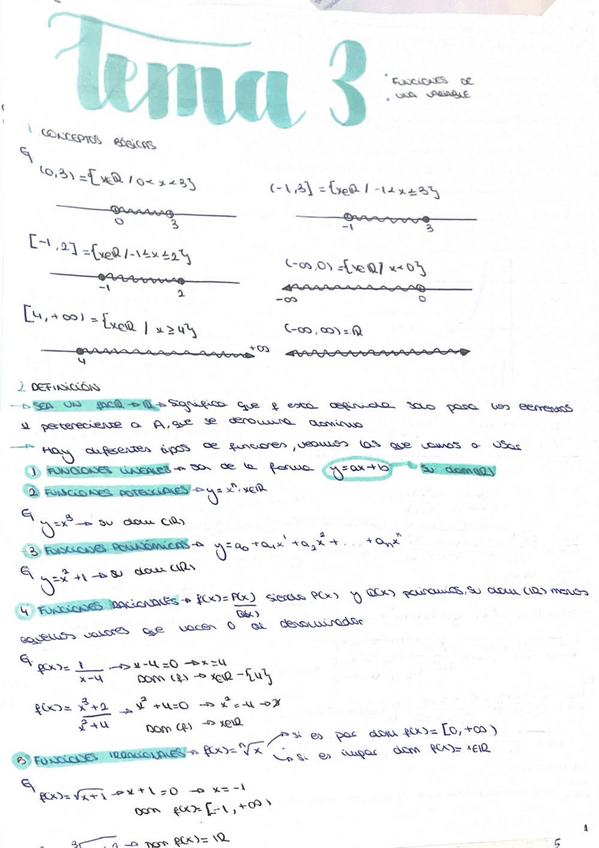 Tema 3
FUNCIONES DE
UNA VARIABLE
1 CONCEPTOS BÁSICOS
Ej
(0,3) = {x∈ℝ / 0<x<3}
(-1,3] = {x∈ℝ / -1<x≤3}
0 3
-1 3
[-1,2] = {x∈ℝ / -1≤x≤2}
(-∞,0) = {x∈ℝ / x<0}
-1 2
-∞ 0
[4,+∞) = {x∈ℝ / x≥4}
(-∞,∞) = ℝ
4 +∞
2. DEFINICIÓN
→ SEA UN f: A⊂ℝ → ℝ → Significa que f está definida solo para los elementos
perteneciente a A, que se denomina dominio
→ Hay diferentes tipos de funciones, veamos las que vamos a usar
1 FUNCIONES LINEALES → Son de la forma y=ax+b → su dom(ℝ)
2 FUNCIONES POTENCIALES → y=xⁿ, x∈ℝ
Ej
y=x³ → su dom (ℝ)
3 FUNCIONES POLINÓMICAS → y=a₀+a₁x¹+a₂x²+...+aₙxⁿ
Ej
y=x²+1 → su dom (ℝ)
4 FUNCIONES RACIONALES → f(x)=P(x)/Q(x) siendo P(x) y Q(x) polinomios, su dom (ℝ) menos
aquellos valores que hacen 0 al denominador
Ej
f(x)= 1/(x-4) → x-4=0 → x=4
Dom (f) → x∈ℝ-{4}
f(x)= (x³+2)/(x²+4) → x²+4=0 → x²=-4 → ∄
Dom (f) → x∈ℝ
5 FUNCIONES IRRACIONALES → f(x)=ⁿ√x → si es par dom f(x)=[0,+∞)
→ si es impar dom f(x)=x∈ℝ
Ej
f(x)=√x+1 → x+1=0 → x=-1
Dom f(x)=[-1,+∞)
→ Dom f(x)=ℝ
1
5